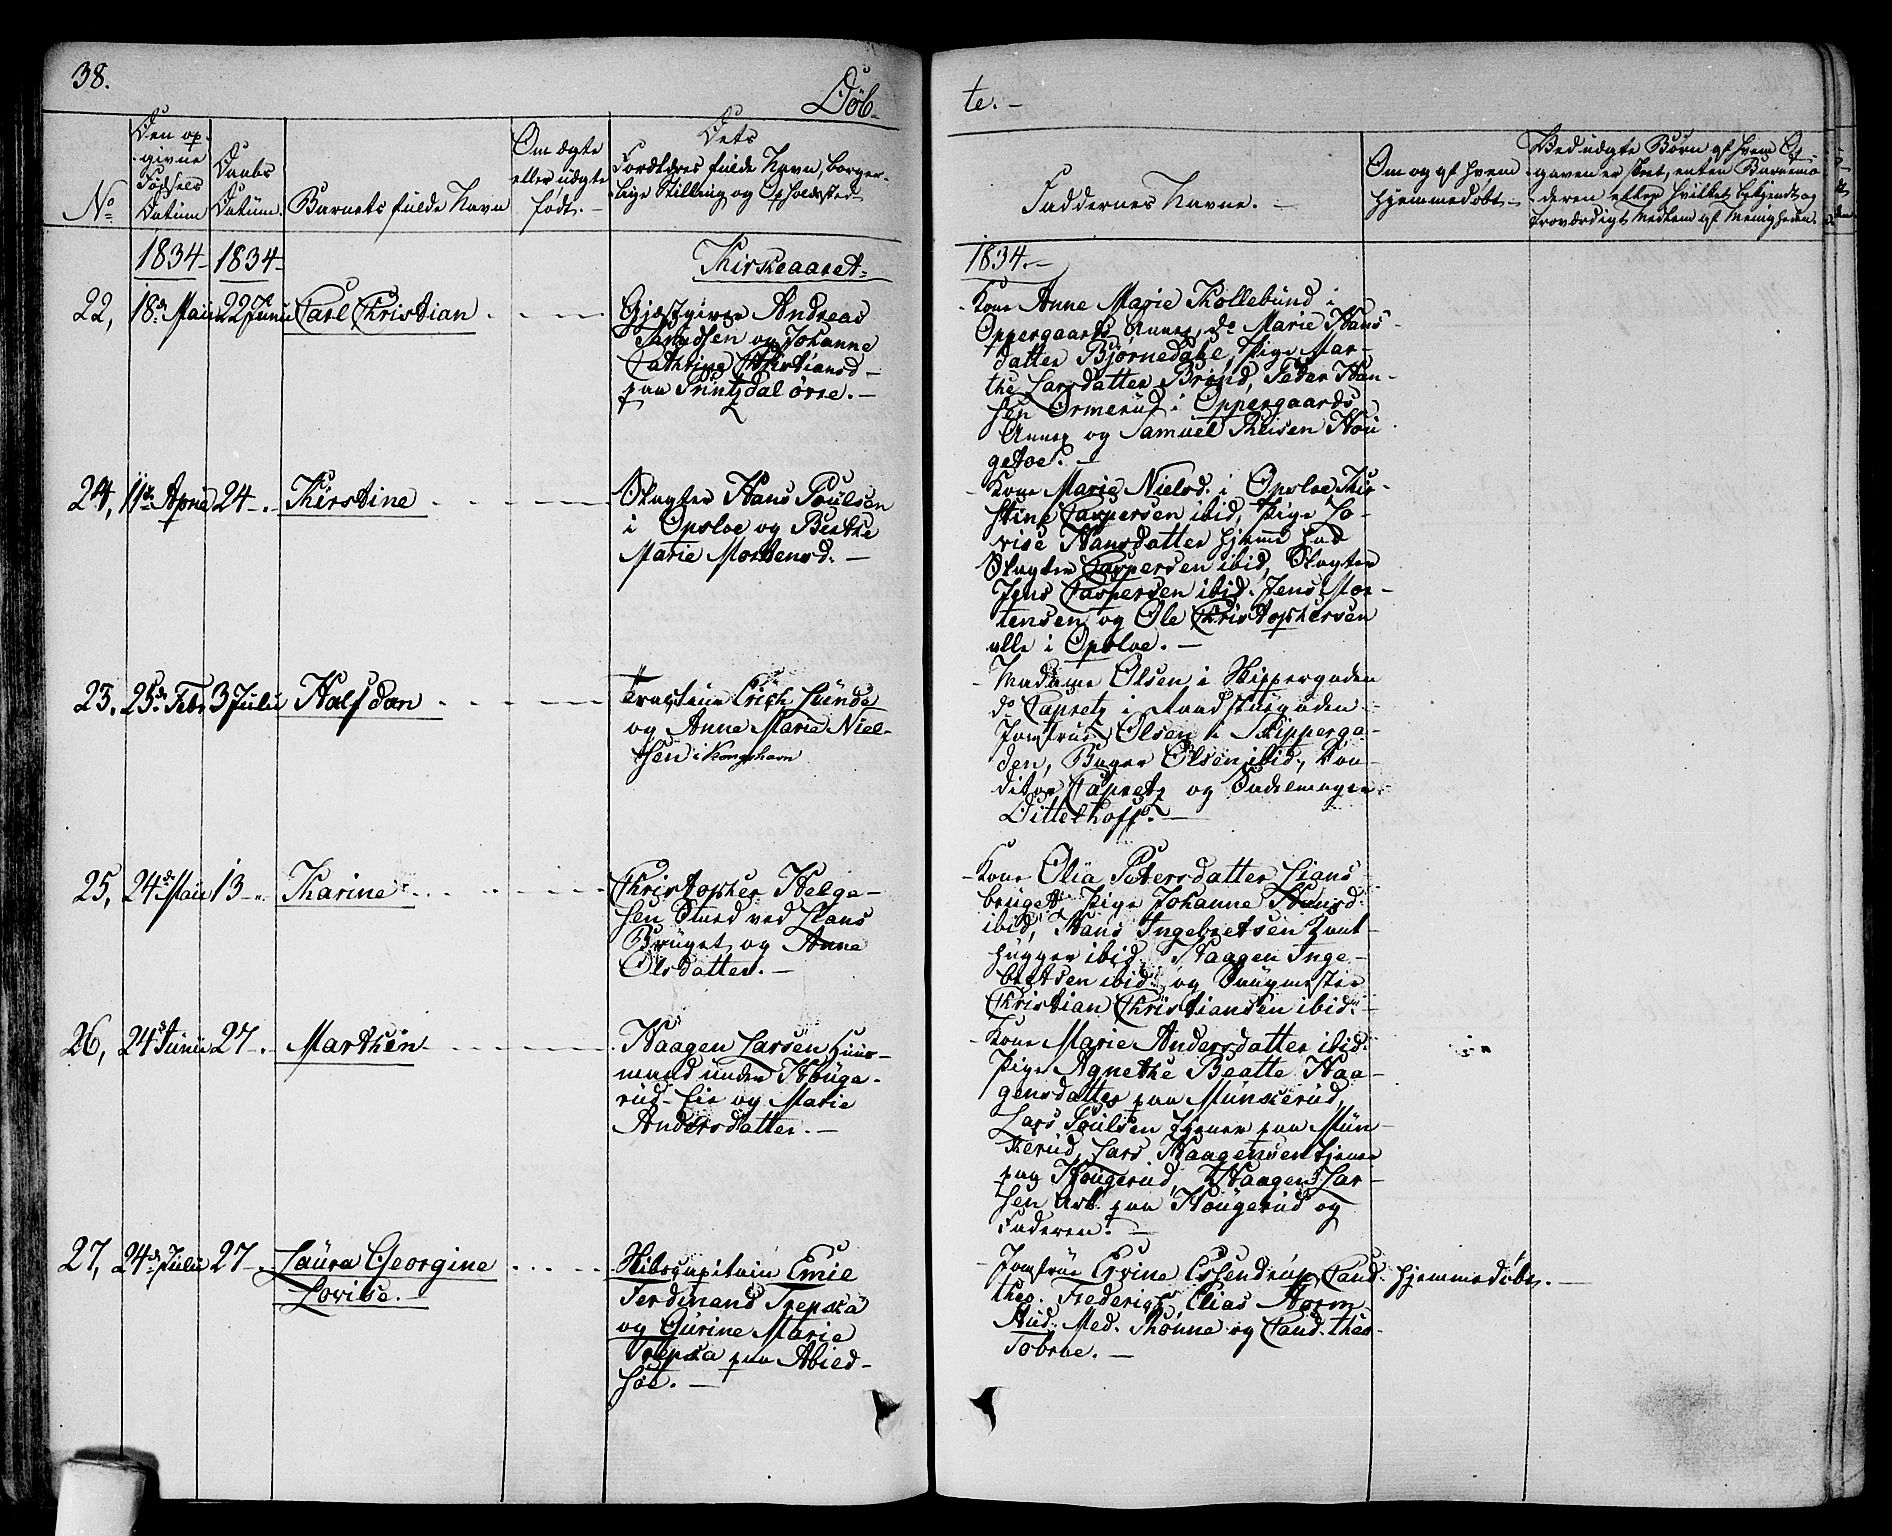 38.
Döb-
te. -
No
Den op-
givne
Födsels
Datum
Daabs
Datum.
Barnets fulde Navn
Om ægte
eller uægte
født. -
Dets
Forældres fulde Navn, borger-
lige Stilling og Opholdssted
Faddernes Navne. -
Om og af hvem
hjemmedøbt -
Ved uægte Børn af hvem Op-
gaven er skeet, enten Barnemo-
deren eller hvilket bekjendt og
troværdigt Medlem af Menigheden.
1834- 1834-
Kirkeaaret-
1834. -
22, 18de Maii 22 Junii Carl Christian
Gjæstgiver Andreas
Knudsen og Johanne
Cathrine Christiansd -
paa Printzdal örre. -
- Kone Anne Marie Kollebund i
Oppergaards Annex, do Marie Hans-
datter Bjørnedahl, Pige Mar-
the Larsdatter Brönd, Peder Han-
sen Ormerüd i Oppergaards
Annex og Samuel Theisen Hou
getoe. -
24, 11te April 24 -. Kirstine
Slagter Hans Poulsen
i Opsloe og Berthe
Marie Mortensd. -
- Kone Marie Nielsd. i Opsloe Kir-
stine Caspersen ibid, Pige Lo-
vise Hansdatter hjemme hos
Slagter Caspersen ibid, Slagter
Jens Caspersen ibid. Jens Mor-
tensen og Ole Christophersen
alle i Opsloe. -
23. 25de Febr 3 Julii Halfdan
Erich Lünde
og Anne Marie Niel-
sen i Kongshavn
- Madame Olsen i Skippergaden
do Capretz i Raadstügaden
Jomfrue Olsen i Skipperga-
den, Bager Olsen ibid, Kon-
ditor Capretz og Sadelmager
Dittelhoff. -
25, 24de Maii 13 -.. Karine
Christopher Helge-
sen Smed ved Lians
Brüget og Anne
Olsdatter. -
- Kone Olia Petersdatter Lians
brüget, Pige Johanne Hansd.
ibid, Hans Ingebretsen Tømt
hügger ibid, Haagen Inge-
bretsen ibid. og Saugmester
Christian Christiansen ibid.
26, 24de Junii 27 -. Marthin
Haagen Larsen Huus-
mand under Houge-
rüd- Eie og Marie
Andersdatter. -
- Kone Marie Andersdatter ibid.
Pige Agnethe Beatte Haa-
gensdatter paa Münkerüd,
Lars Poulsen tjener paa Mün-
kerüd, Lars Haagensen tjener
paa Hougerüd, Haagen Lar-
sen Arb. paa Hougerüd og
Faderen. -
27, 24de Julii 27 -. Laüra Georgine
Lovise.
Skibscapitain Emil
Ferdinand Trepka
og Gurine Marie
Trepka paa Abied-
söe. -
- Jomfrüe Ervine Essendrüp, Cand.
theo. Frederich Elias Storm
Stud. Med. Thonne og Cand. theo-
Tobroe. -
hjemmedøbt. -